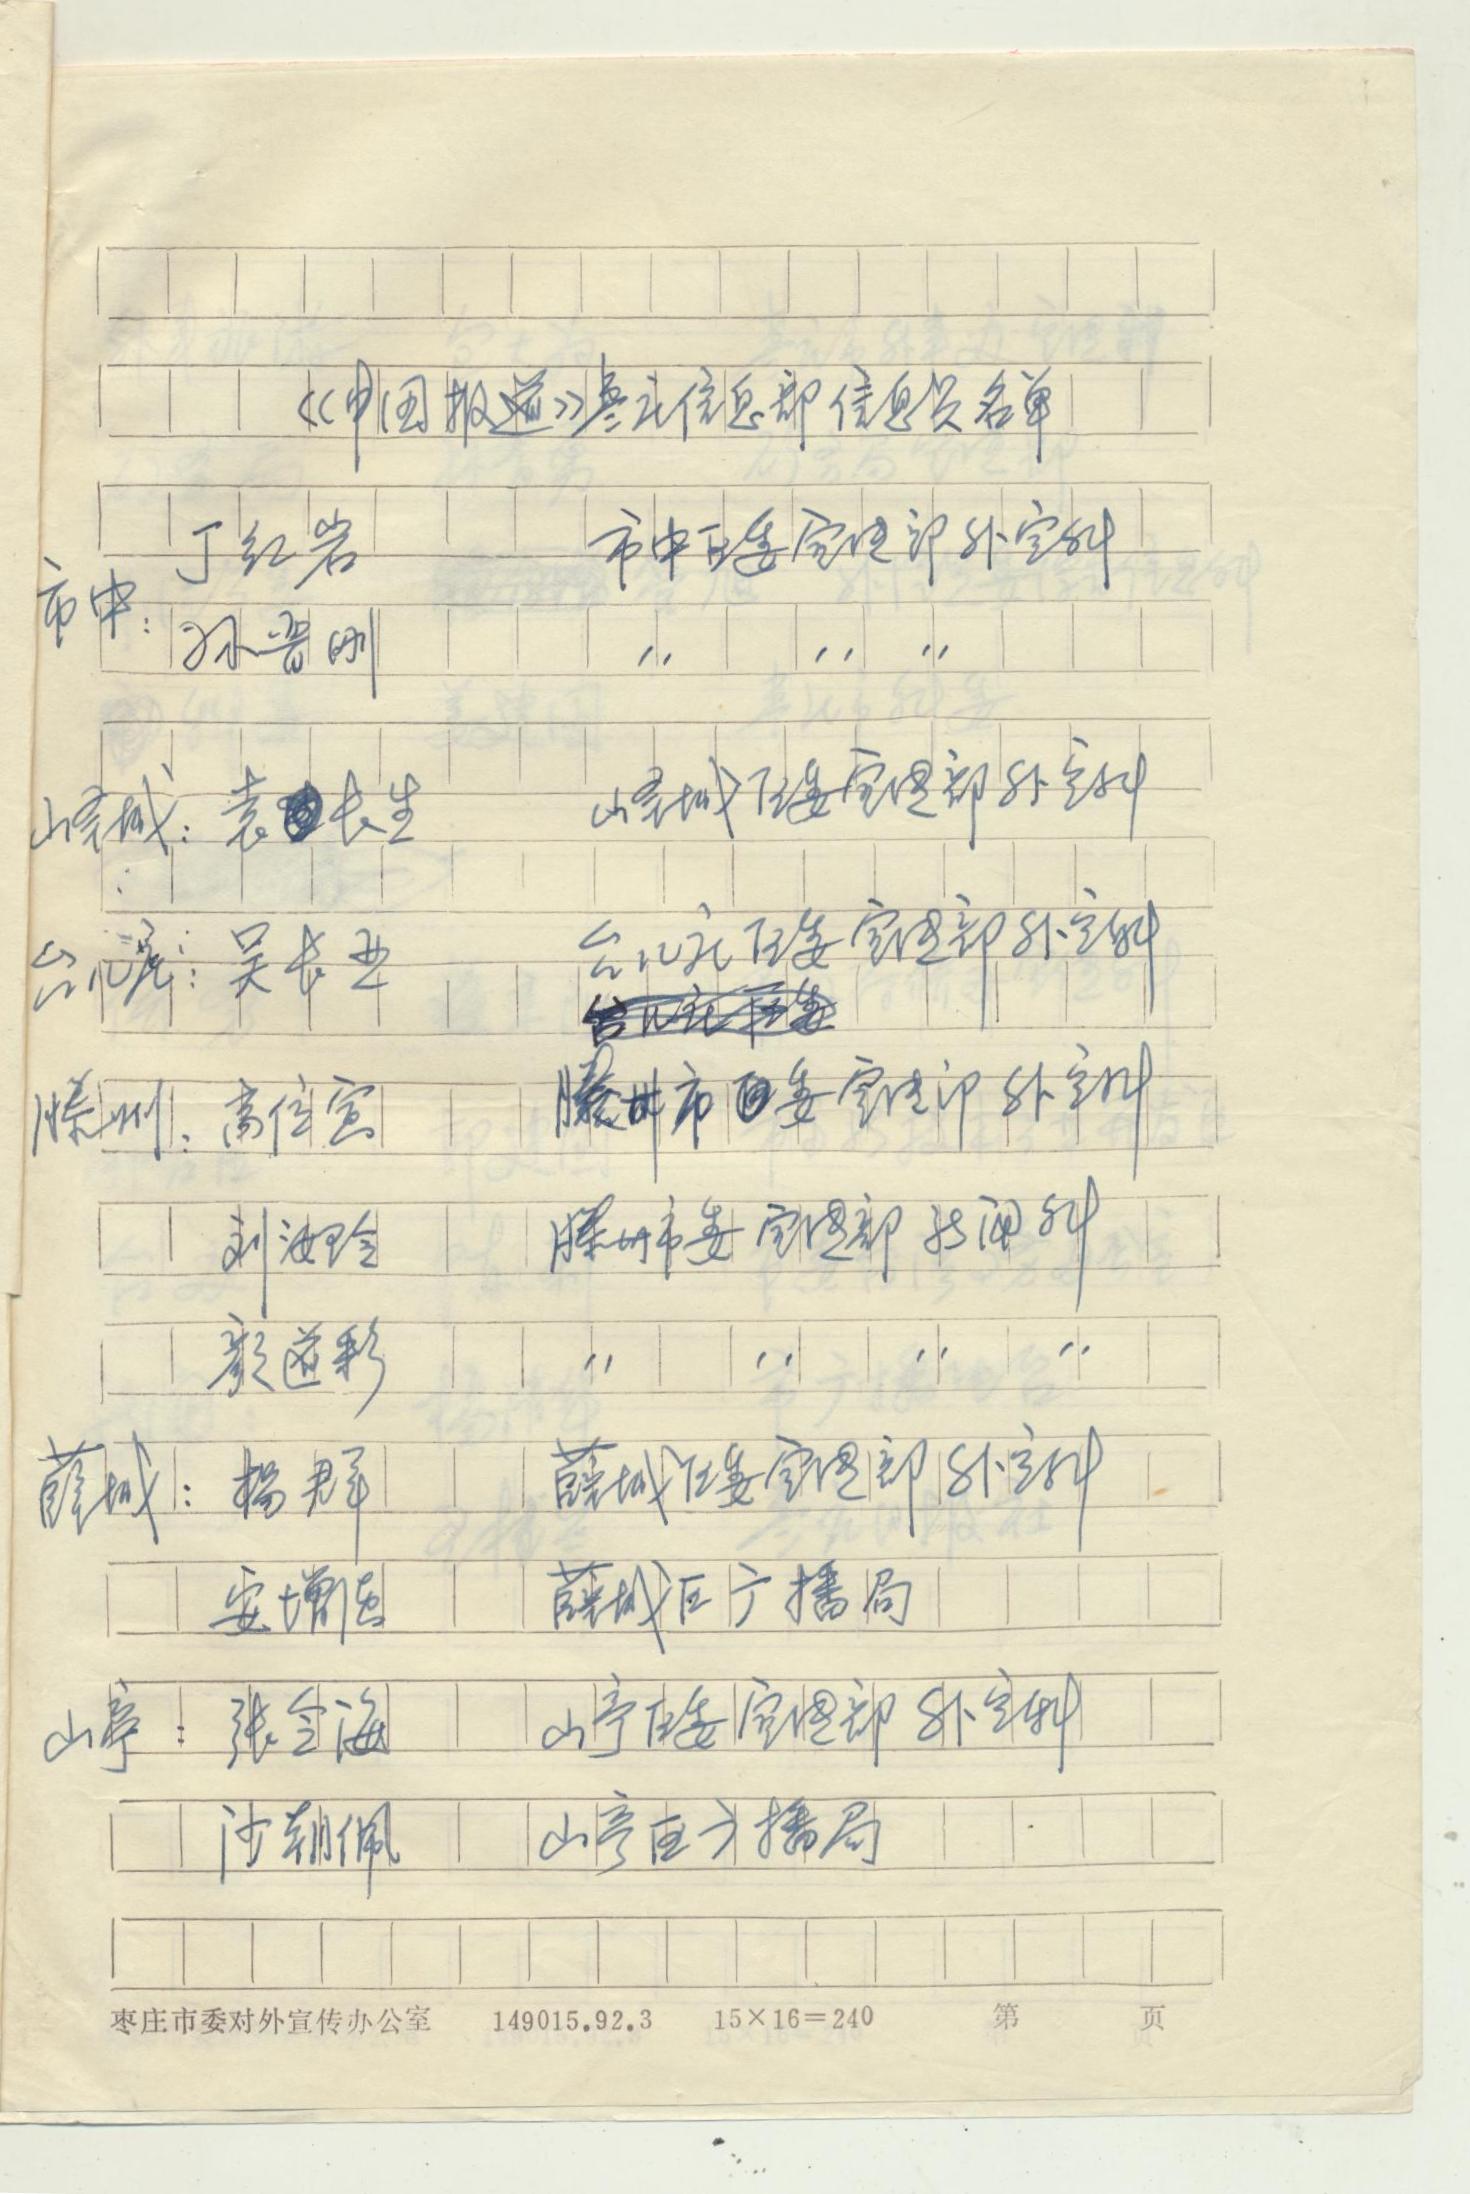 《中国报道》枣庄信息部信息员名单
丁红岩 市中区委宣传部外宣科
市中:
孙晋刚 〃 〃 〃
峄城: 袁长生 峄城区委宣传部外宣科
台儿庄: 吴长亚 台儿庄区委宣传部外宣科
台儿庄区委
滕州: 高位宣 滕州市委宣传部外宣科
刘汝玲 滕州市委宣传部新闻科
颜道彩 〃 〃 〃 〃
薛城: 杨君军 薛城区委宣传部外宣科
安增 薛城区广播局
山亭: 张金海 山亭区委宣传部外宣科
沙朝佩 山亭区广播局
枣庄市委对外宣传办公室 149015.92.3 15×16=240 第 页